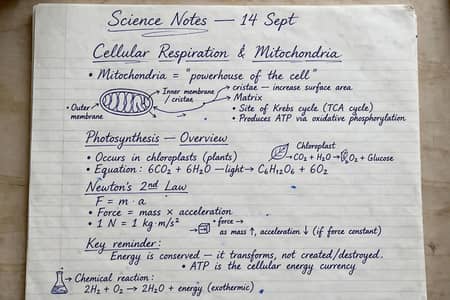 Science Notes — 14 Sept
Cellular Respiration & Mitochondria
• Mitochondria = "powerhouse of the cell"
Inner membrane / cristae
cristae — increase surface area
Matrix
• Outer membrane
• Site of Krebs cycle (TCA cycle)
• Produces ATP via oxidative phosphorylation
Photosynthesis — Overview
Chloroplast
• Occurs in chloroplasts (plants)
CO₂ + H₂O → O₂ + Glucose
• Equation: 6CO₂ + 6H₂O —light→ C₆H₁₂O₆ + 6O₂
Newton's 2nd Law
F = m · a
• Force = mass × acceleration
• 1 N = 1 kg·m/s²
• force →
as mass ↑, acceleration ↓ (if force constant)
Key reminder:
Energy is conserved — it transforms, not created/destroyed.
• ATP is the cellular energy currency
Chemical reaction:
2H₂ + O₂ → 2H₂O + energy (exothermic)